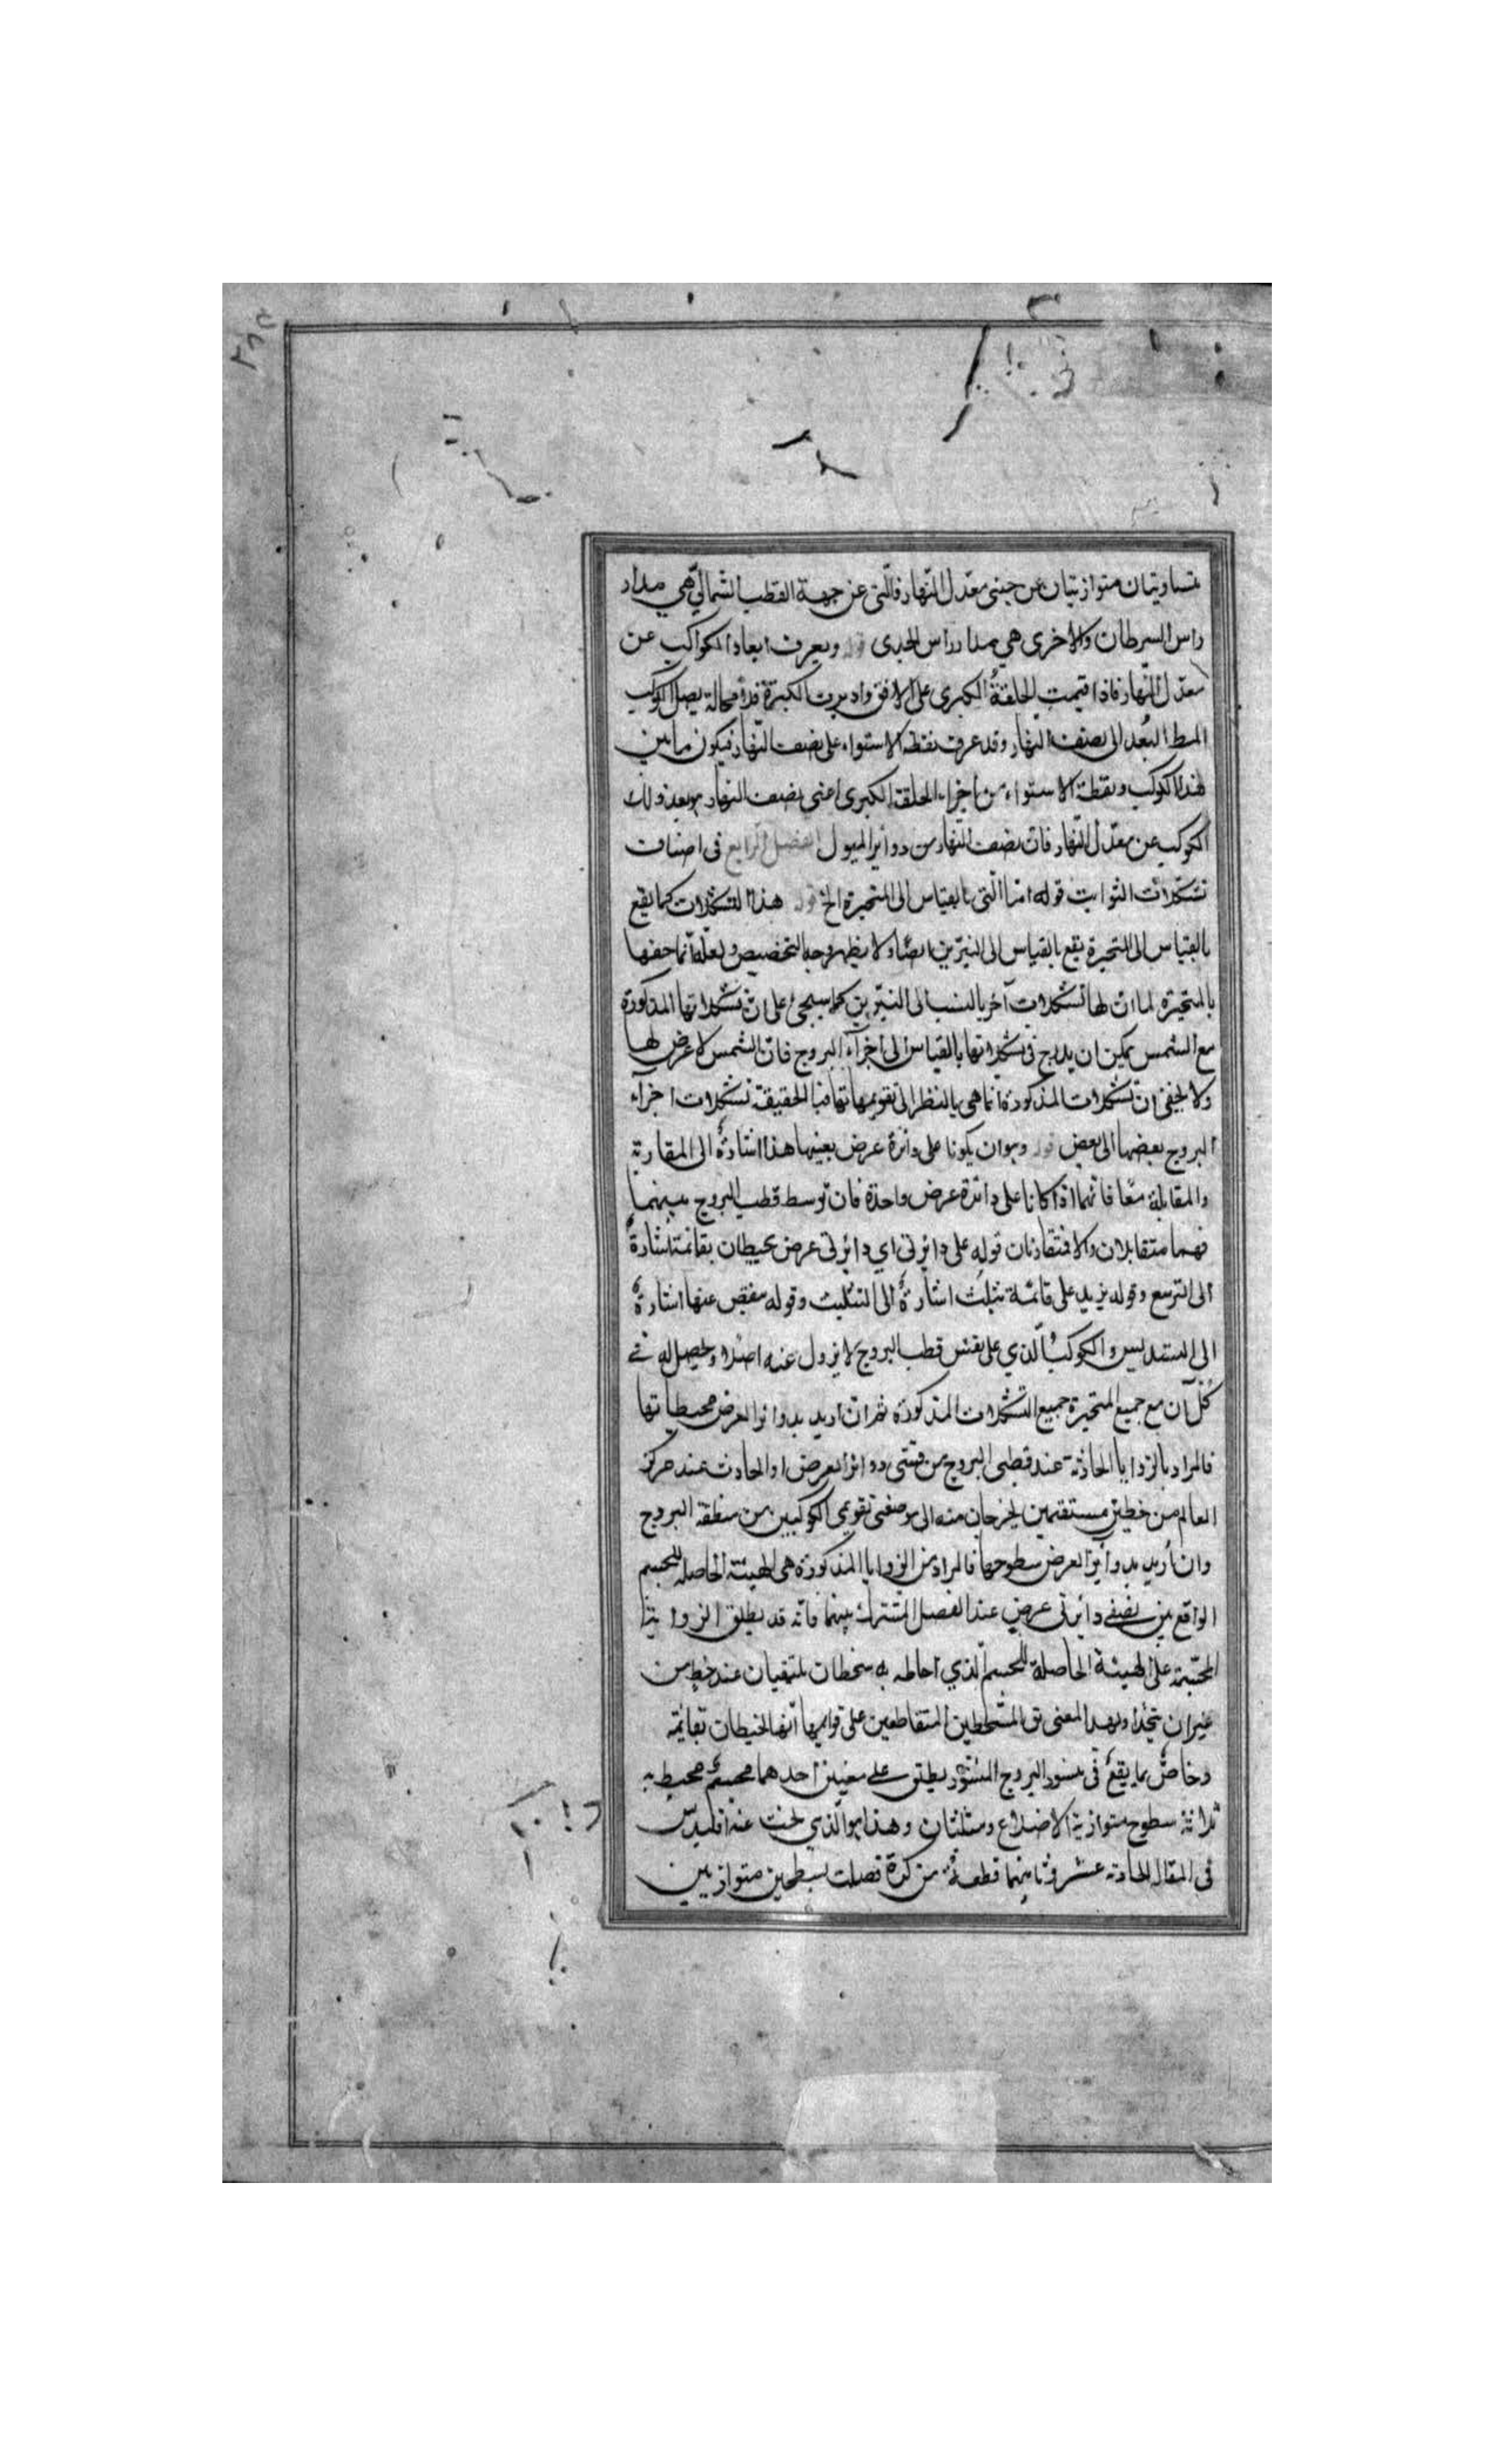 متساويتان متوازيتان عن جنبى معدّل النّهار فالّتى عن جهة القطب الشمالىّ هي مدار
راس السرطان والاخرى هي مدار راس الجدى قوله ويعرف ابعاد الكواكب عن
معدّل النّهار فاذا اقيمت الحلقة الكبرى على الافق واديرت الكبيرة فلا محالة يصل الكوكب
البعد الى نصف النهار وقد عرف نقطة الاستواء على نصف النّهار فيكون ما بين
هذا الكوكب ونقطة الاستواء من اجزاء الحلقة الكبرى اعنى نصف النهار بعد ذلك
الكوكب عن معدّل النّهار فانّ نصف النّهار من دوائر الميول الفصل الرابع فى اصناف
تشكّلات الثوابت قوله امّا الّتى بالقياس الى المتحيرة الخ قوله هذه التشكّلات كما يقع
بالقياس الى المتحيرة يقع بالقياس الى النيّرين ايضًا ولا يظهر وجه التخصيص ولعلّه انّما خصّها
بالمتحيّرة لما انّ لها تشكّلات آخر بالنسبة الى النيّرين كما سيجئ على انّ تشكّلاتها المذكورة
مع الشمس يمكن ان يدرج فى تشكّلاتها بالقياس الى اجزآء البروج فانّ الشمس لا عرض لها
ولا يخفى انّ تشكّلات المذكورة انّما هى بالنظر الى تقويماتها فبالحقيقة تشكّلات اجزآء
البروج بعضها الى بعض قوله وهو ان يكونا على دائرة عرض بعينها هذا اشارة الى المقارنة
والمقابلة معًا فانّهما اذا كانا على دائرة عرض واحدة فان توسط قطب البروج بينهما
فهما متقابلان والا فمتقارنان قوله على دائرتى اى دائرتى عرض يحيطان بقائمة اشارة
الى التربيع وقوله يزيد على قائمة بثلث اشارة الى التثليث وقوله ينقص عنها اشارة
الى التسديس والكوكب الّذي على نفس قطب البروج لا يزول عنه اصلا ويحصل له فى
كلّ آن مع جميع المتحيرة جميع التشكّلات المذكورة ثم ان اريد بدوائر العرض محيطاتها
فالمراد بالزوايا الحادثة عند قطبى البروج من قسّى دوائر العرض او الحادث عند مركز
العالم من خطين مستقيمين يخرجان منه الى موضعى تقويمى الكوكبين من منطقة البروج
وان اريد بدوائر العرض سطوحها فالمراد من الزوايا المذكورة هى الهيئة الحاصلة للجسم
الواقع بين نصفى دائرتى عرض عند الفصل المشترك بينهما فانّه قد يطلق الزوايا
المجسّمة على الهيئة الحاصلة للجسم الّذي احاط به سطحان يلتقيان عند خط من
غير ان يتحدا وبهذا المعنى يق للسّطحين المتقاطعين على قوايم انّهما يحيطان بقائمة
وخاصّ بما يقع فى منشور البروج المنشور يطلق على معنيين احدهما مجسّم محيط به
ثلاثة سطوح متوازية الاضلاع ومثلثان وهذا هو الّذي بحث عنه اقليدس
فى المقالة الحادية عشر وثانيهما قطعة من كرة فصلت بسطحين متوازيين